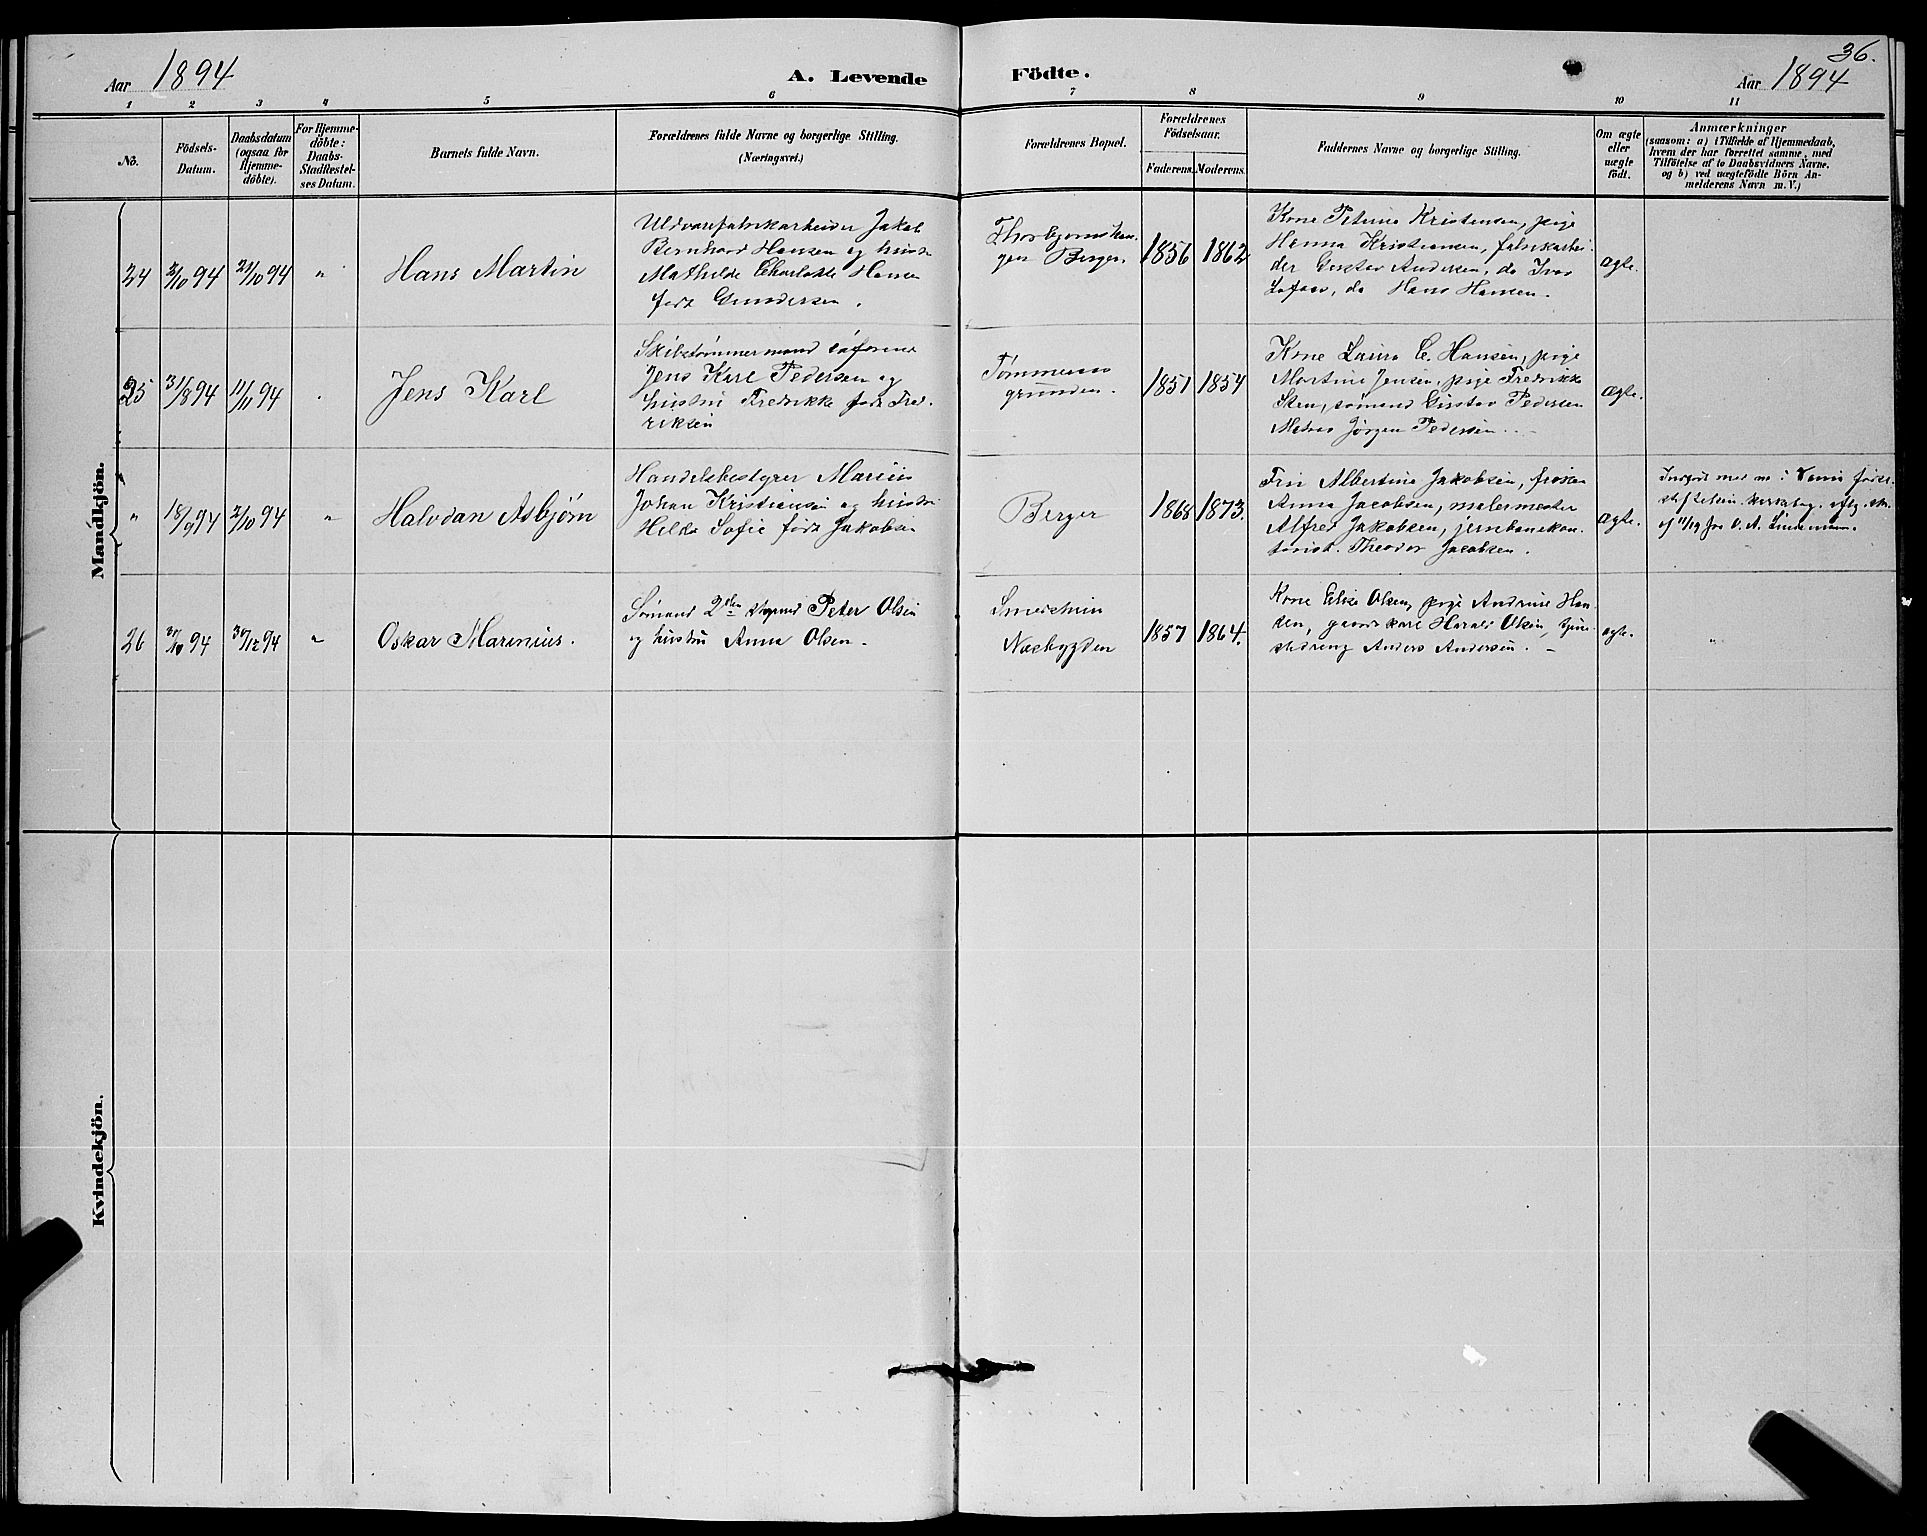 36.
Aar 1894
A. Levende
Födte.
Aar 1894
1 2 3 4 5 6 7 8 9 10 11
No.
Födsels-
Datum.
Daabsdatum
(ogsaa for
Hjemme-
döbte).
For Hjemme-
döbte:
Daabs-
Stadfæstel-
ses Datum.
Barnets fulde Navn.
Forældrenes fulde Navne og borgerlige Stilling.
(Næringsvei.)
Forældrenes Bopæl.
Forældrenes
Födselsaar.
Faderens. Moderens.
Faddernes Navne og borgerlige Stilling.
Om ægte
eller
uægte
födt.
Anmærkninger
(saasom: a) i Tilfælde af Hjemmedaab,
hvem der har forrettet samme, med
Tilföielse af to Daabsvidners Navne.
og b) ved uægtefödte Börn An-
melderens Navn m. V.)
Mandkjön.
24
2/10 94
21/10 94
"
Hans Martin
Uldvarefabrikarbeider Jakob
Bernhard Hansen og hustru
Mathilde Charlotte Hansen
født Gundersen.
Thorbjørnskau-
gen Berger.
1856
1862
Kone Petrine Kristensen, pige
Hanna Kristiansen, fabrikarbei-
der Gustav Andersen, do Ivar
do Hans Hansen.
ægte.
25
31/8 94
11/11 94
Jens Karl
Skibstømmermand
Jens Karl Pedersen og
hustru Fredrikke født Fred-
riksen
Tømmeraas
grunden.
1851
1854
Kone Laura C. Hansen, pige
Martine Jensen, pige Fredrikke
Sten, sømand Gustav Pedersen
Matros Jørgen Pedersen.
ægte.
"
18/9 94
2/10 94
"
Halvdan Asbjørn
Handelsbestyrer Marius
Johan Kristiansen og hustru
Hilda Sofie født Jakobsen
Berger
1868
1873.
Frue Albertine Jakobsen, frøken
Anna Jacobsen, malermester
Alfred Jakobsen, jernbanekon-
torist. Theodor Jacobsen.
ægte.
Indført med no i
kirkebog.
af 11/19 fra O. A. Lindeman.
26
30/10 94
30/12 94
"
Oskar Marenius.
Sømand 2den styrmd Peter Olsen
og hustru Anna Olsen.
Smedshuus
Næsbygden
1857
1864.
Kone Elise Olsen, pige Andrine Han-
sen, gaardskarl Harald Olsen, tjene-
stedreng Anders Andersen.
ægte.
"
Kvindekjön.